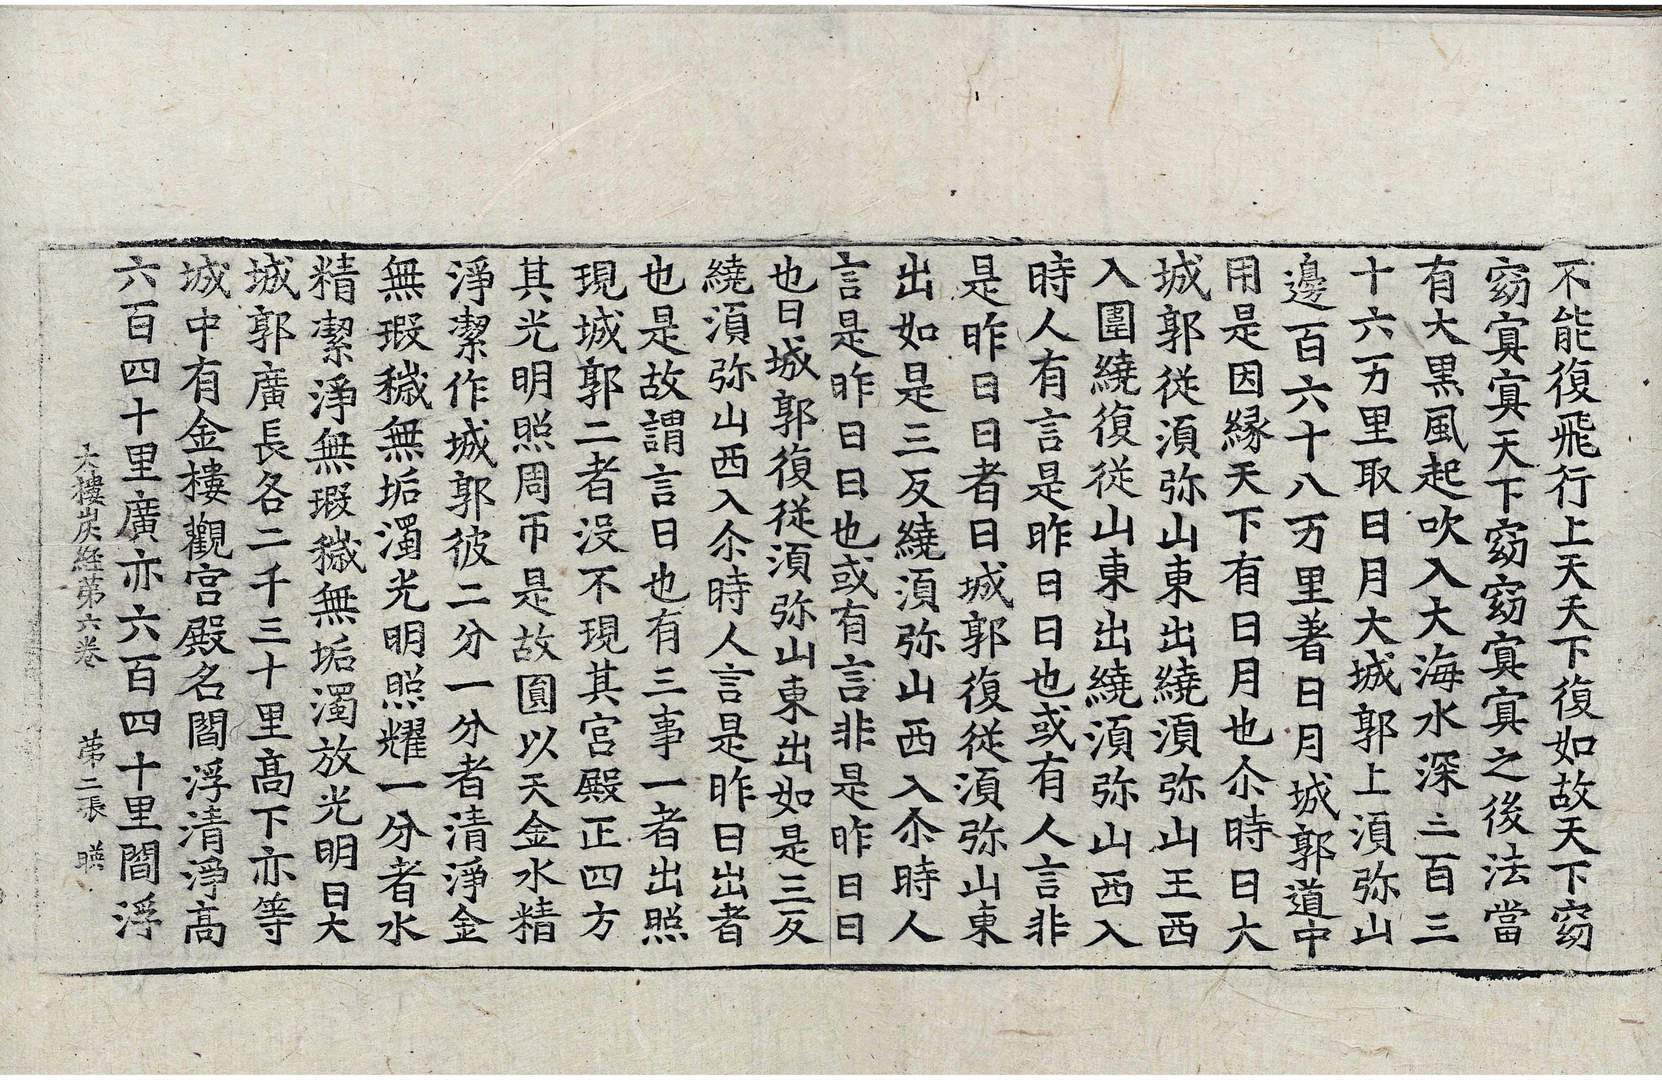 不能復飛行上天天下復如故天下窈
窈冥冥天下窈窈冥冥之後法當
有大黑風起吹入大海水深三百三
十六万里取日月大城郭上湏弥山
邊百六十八万里著日月城郭道中
用是因縁天下有日月也尒時日大
城郭従湏弥山東出繞湏弥山王西
入圍繞復従山東出繞湏弥山西入
時人有言是昨日日也或有人言非
是昨日日者日城郭復従湏弥山東
出如是三反繞湏弥山西入尒時人
言是昨日日也或有言非是昨日日
也日城郭復従湏弥山東出如是三反
繞湏弥山西入尒時人言是昨日出者
也是故謂言日也有三事一者出照
現城郭二者没不現其宫殿正四方
其光明照周帀是故圎以天金水精
淨潔作城郭彼二分一分者清淨金
無瑕穢無垢濁光明照耀一分者水
精潔淨無瑕穢無垢濁放光明日大
城郭廣長各二千三十里髙下亦等
城中有金樓觀宫殿名閻浮清淨髙
六百四十里廣亦六百四十里閻浮
大樓炭経第六巻 苐二張 暎